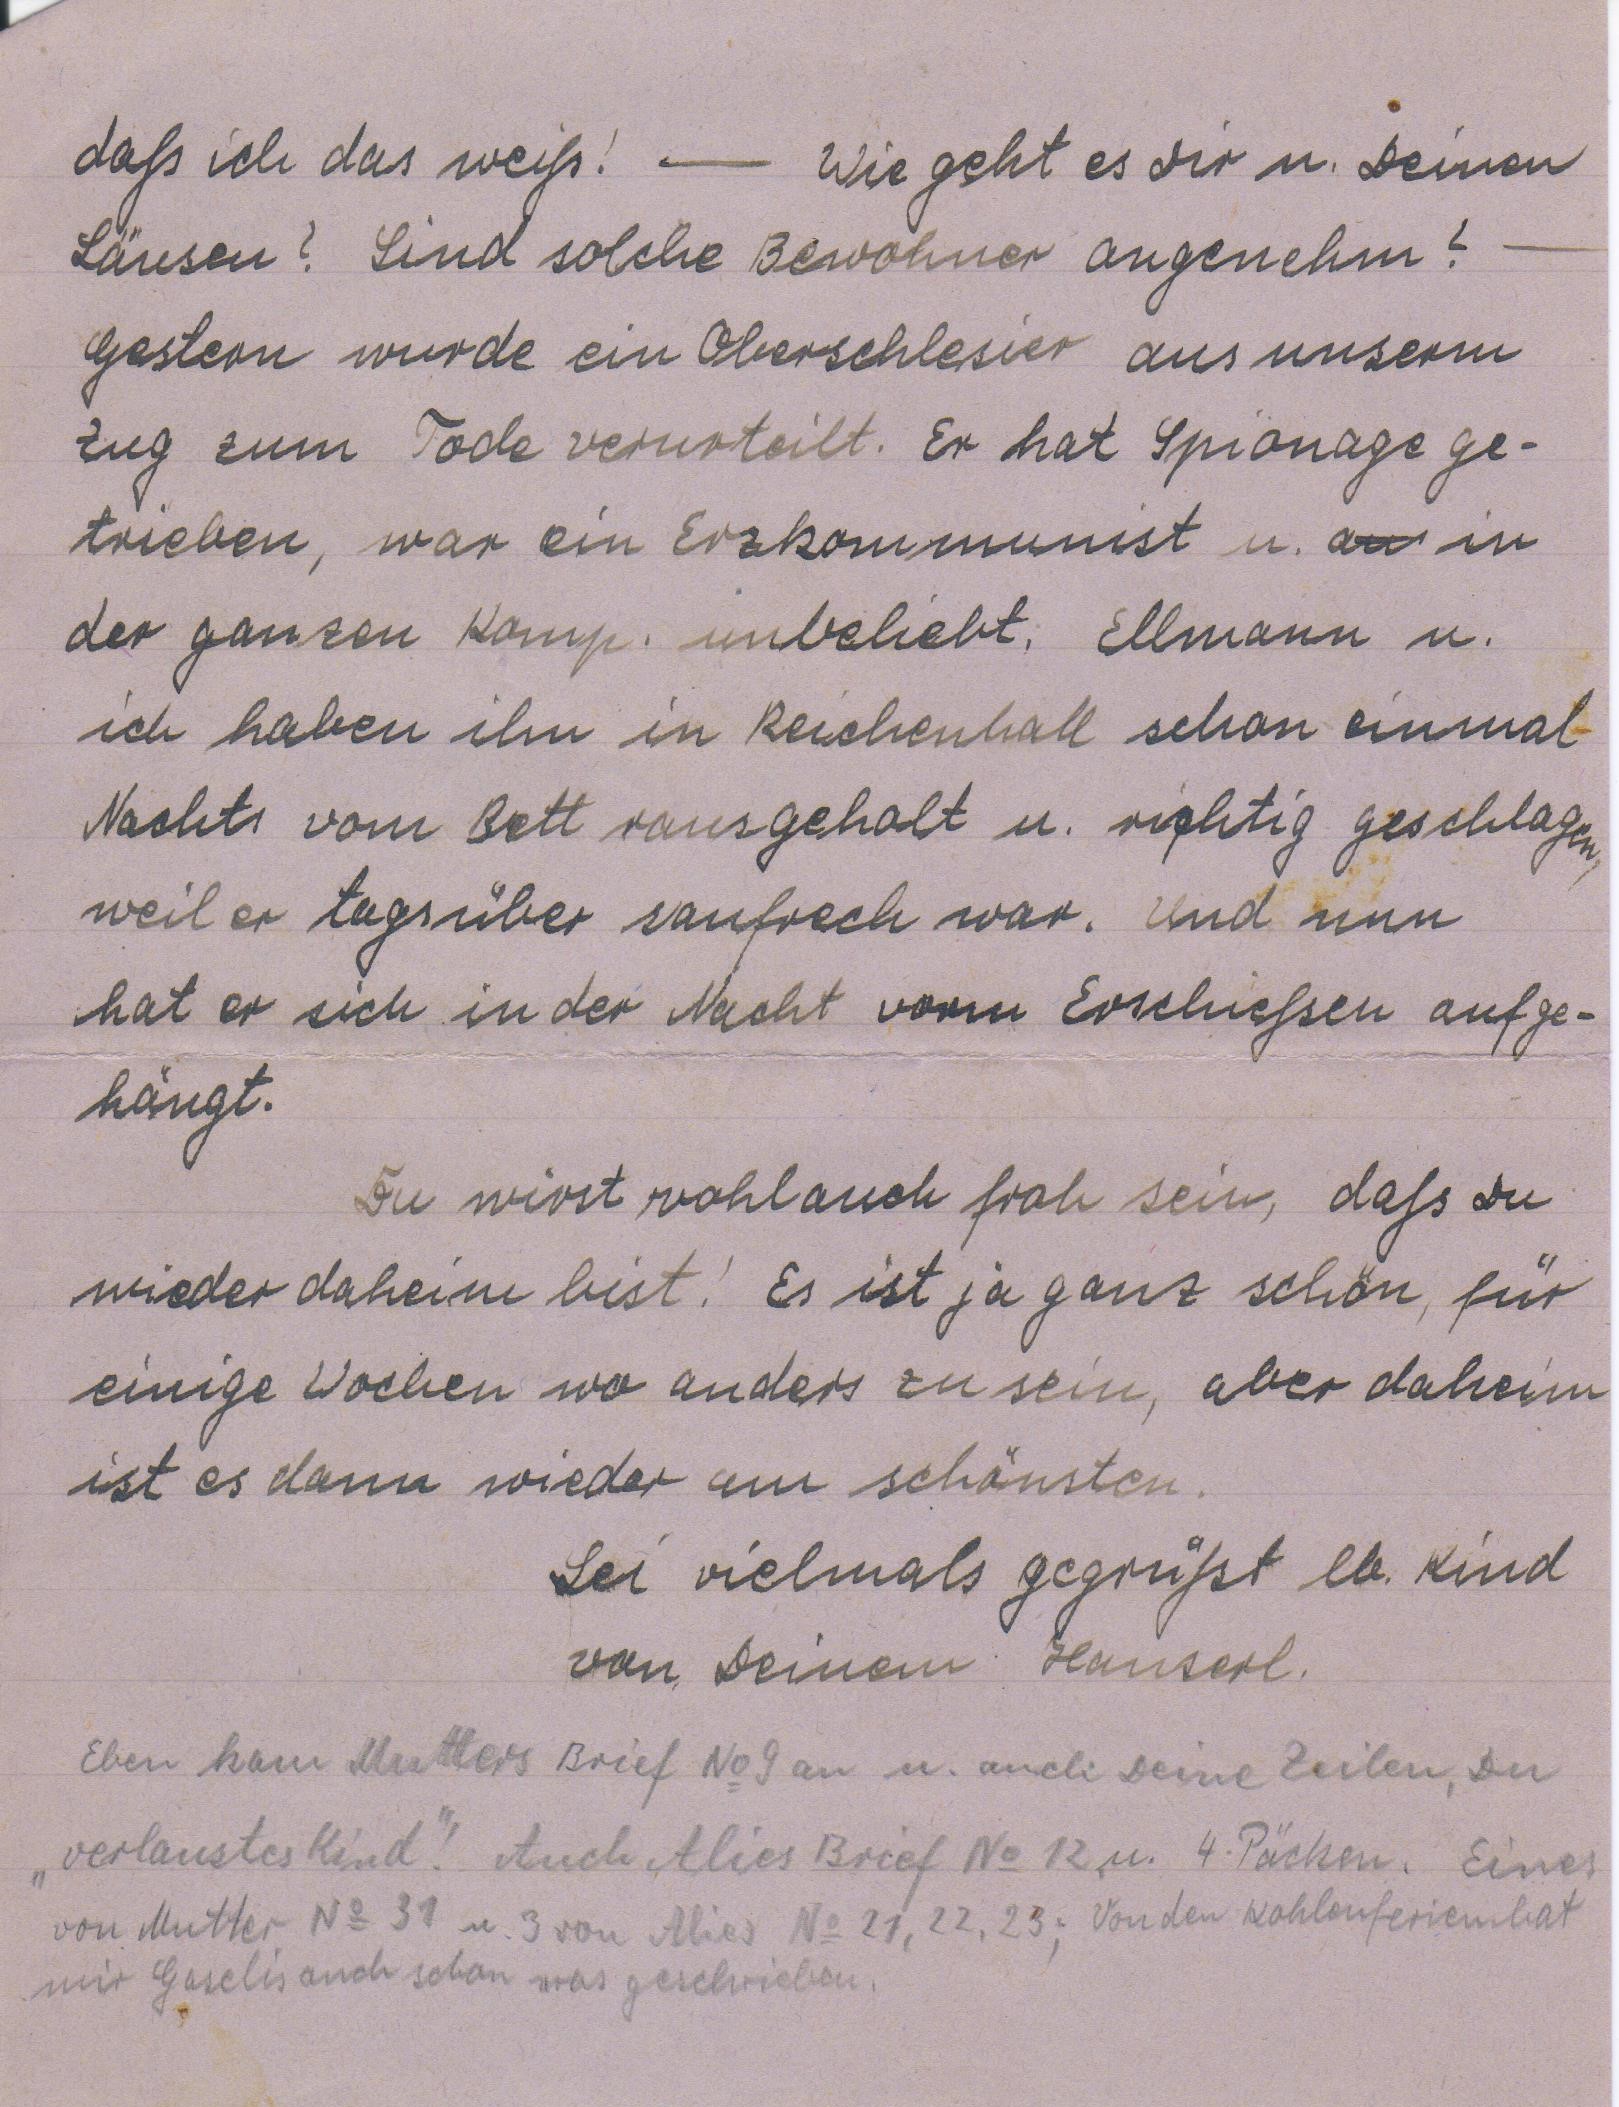 daß ich das weiß! — Wie geht es Dir u. Deinen
Läusen? Sind solche Bewohner angenehm? —
Gestern wurde ein Oberschlesier aus unserm
Zug zum Tode verurteilt. Er hat Spionage ge-
trieben, war ein Erzkommunist u. an in
der ganzen Komp. unbeliebt. Ellmann u.
ich haben ihn in Reichenhall schon einmal
Nachts vom Bett rausgeholt u. richtig geschlagen,
weil er tagsüber saufrech war. Und nun
hat er sich in der Nacht vorm Erschießen aufge-
hängt.
Du wirst wohl auch froh sein, daß Du
wieder daheim bist! Es ist ja ganz schön, für
einige Wochen wo anders zu sein, aber daheim
ist es dann wieder am schönsten.
Sei vielmals gegrüßt lb. Kind
von Deinem Hanserl.
Eben kam Mutters Brief No 9 an u. auch Deine Zeilen, Du
„verlaustes Kind"! Auch Alies Brief No 12 u. 4 Päcken. Eines
von Mutter No 31 u. 3 von Alies No 21, 22, 23; Von den Kohlenferien hat
mir auch schon was geschrieben.